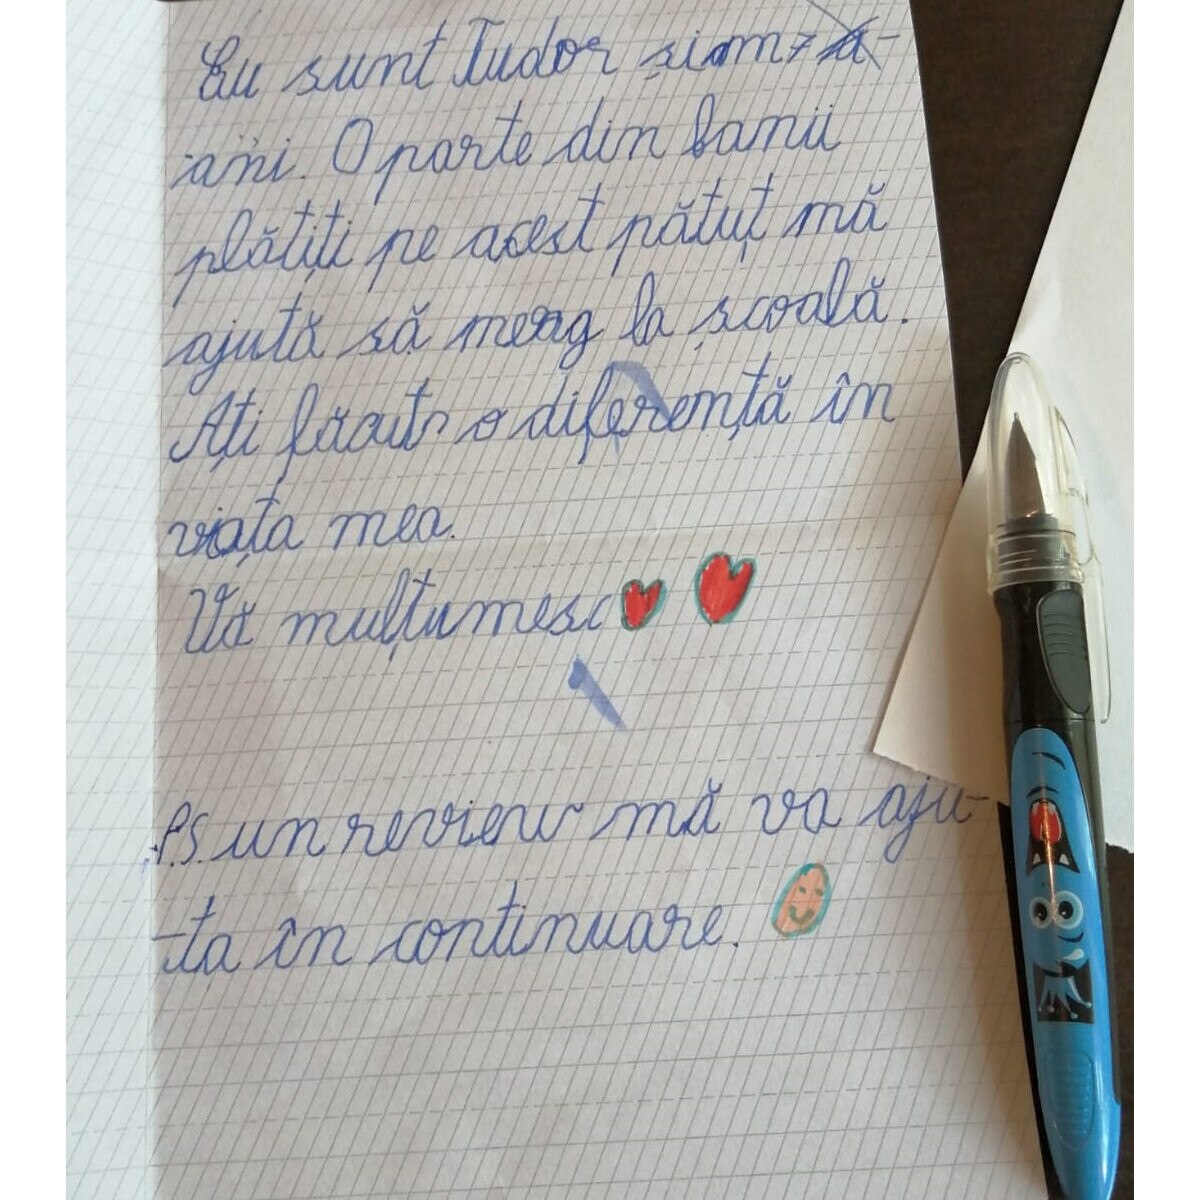 Eu sunt Tudor și am 7 a-
ani. O parte din banii
plătiți pe acest pătuț mă
ajută să merg la școală.
Ați făcut o diferență în
viața mea.
Vă mulțumesc
P.S. un review mă va aju-
-ta în continuare.